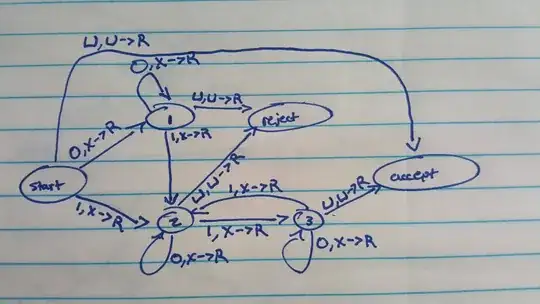 ⊔, ⊔->R
0, x->R
1
⊔, ⊔->R
reject
0, x->R
1, x->R
⊔, ⊔->R
accept
start
1, x->R
1, x->R
⊔, ⊔->R
2
1, x->R
3
0, x->R
0, x->R